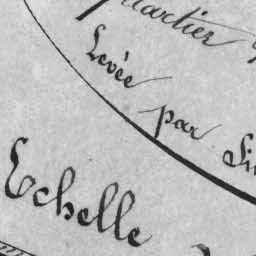 Quartier
Levée par
Echelle